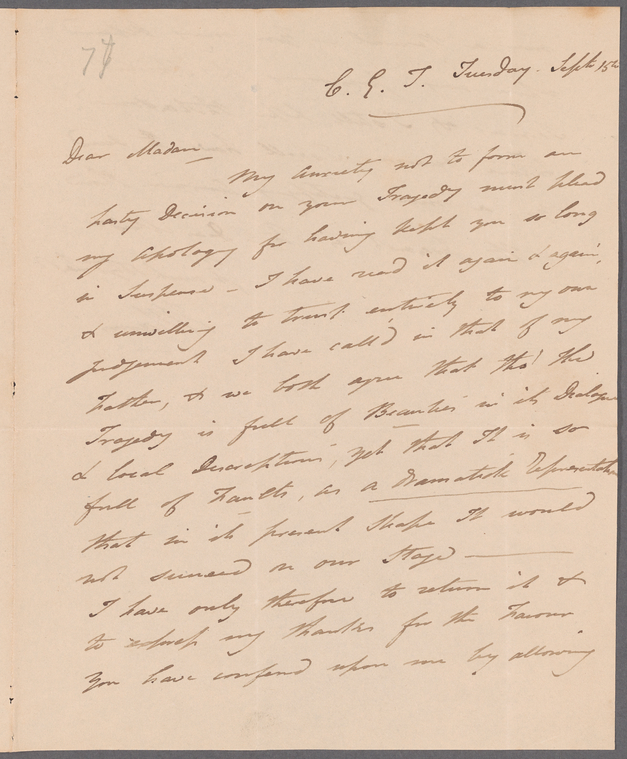 C. G. T. Tuesday. Sept. 15th
Dear Madam
My Anxiety not to form an
hasty Decision on your Tragedy must plead
my Apology for having kept you so long
in Suspense – I have read it again & again,
& unwilling to trust entirely to my own
judgement I have call'd in that of my
Father, & we both agree that tho' the
Tragedy is full of Beauties in its Dialogue
& local Descriptions, yet that It is so
full of Faults, as a dramatick Representation
that in its present Shape It would
not succeed on our Stage —
I have only therefore to return it &
to express my thanks for the Favour
you have conferd upon me by allowing